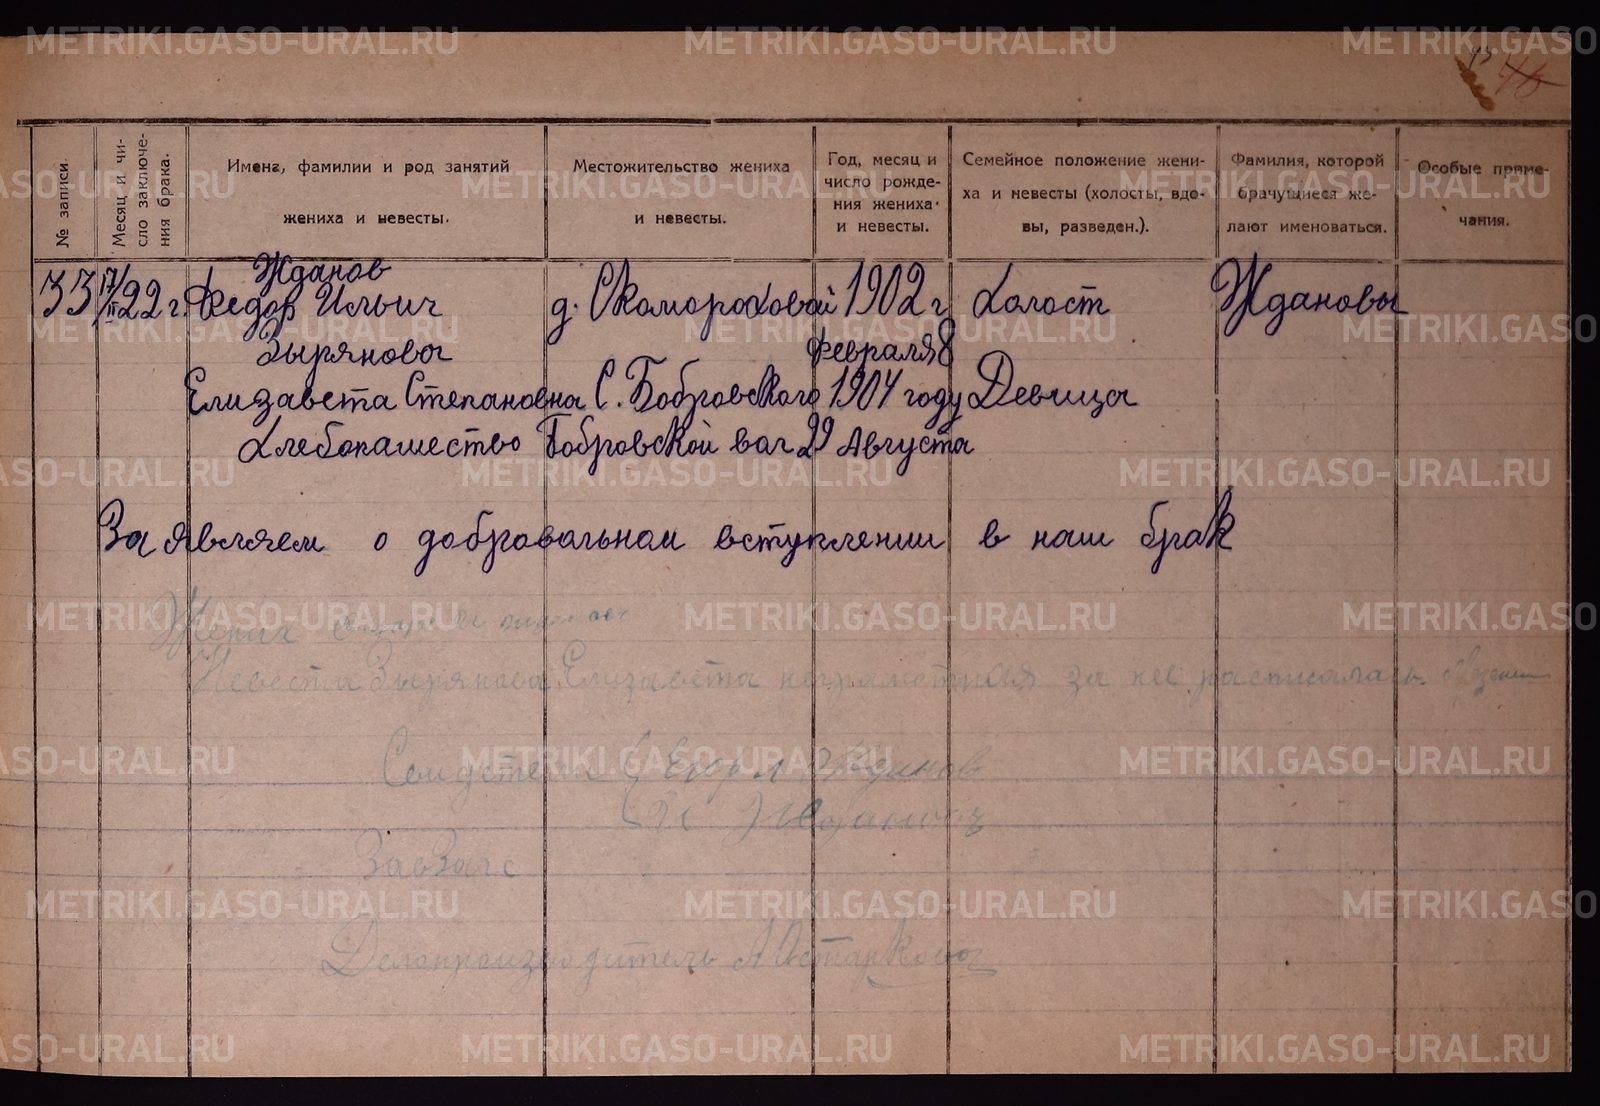 METRIKI.GASO-URAL.RU
43
48
№ записи.
Месяц и чи-
сло заключе-
ния брака.
Имена, фамилии и род занятий
жениха и невесты.
Местожительство жениха
и невесты.
Год, месяц и
число рожде-
ния жениха
и невесты.
Семейное положение жени-
ха и невесты (холосты, вдо-
вы, разведен.).
Фамилия, которой
брачущиеся же-
лают именоваться.
Особые приме-
чания.
Жданов
33 17/II 22 г. Федор Ильич д. Скомороховой 1902 г Холост Ждановы
Зырянова февраля 8
Елизавета Степановна С. Бобровского 1904 году Девица
Хлебопашество Бобровской вол 29 Августа
Заявляем о добровольном вступлении в наш брак
Жених
Невеста Зырянова Елизавета неграмотная за нее расписалась
Егор Жданов
ЗавЗагс
Делопроизводитель